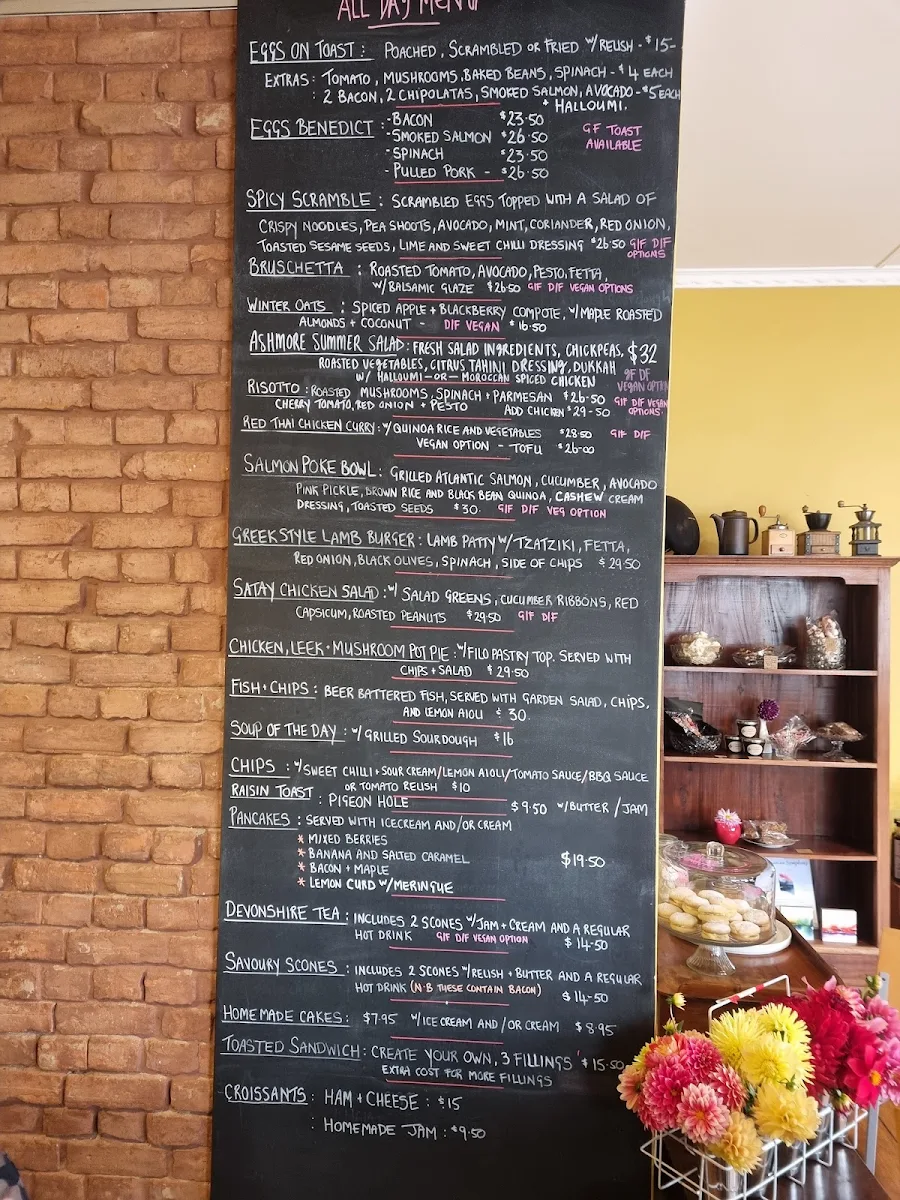 ALL DAY MENU
EGGS ON TOAST : POACHED, SCRAMBLED OR FRIED W/ REUSH - $15-
EXTRAS : TOMATO, MUSHROOMS, BAKED BEANS, SPINACH - $4 EACH
: 2 BACON, 2 CHIPOLATAS, SMOKED SALMON, AVOCADO - $5 EACH
+ HALLOUMI.
EGGS BENEDICT : - BACON $23.50
- SMOKED SALMON $26.50
- SPINACH $23.50
- PULLED PORK - $26.50
GF TOAST
AVAILABLE
SPICY SCRAMBLE : SCRAMBLED EGGS TOPPED WITH A SALAD OF
CRISPY NOODLES, PEA SHOOTS, AVOCADO, MINT, CORIANDER, RED ONION,
TOASTED SESAME SEEDS, LIME AND SWEET CHILLI DRESSING $26.50 GIF DIF
OPTIONS
BRUSCHETTA : ROASTED TOMATO, AVOCADO, PESTO, FETTA,
W/ BALSAMIC GLAZE $26.50 GIF DIF VEGAN OPTIONS
WINTER OATS : SPICED APPLE + BLACKBERRY COMPOTE, W/ MAPLE ROASTED
ALMONDS + COCONUT - DIF VEGAN $16.50
ASHMORE SUMMER SALAD : FRESH SALAD INGREDIENTS, CHICKPEAS, $32
ROASTED VEGETABLES, CITRUS TAHINI DRESSING, DUKKAH GF DF
W/ HALLOUMI - OR - MOROCCAN SPICED CHICKEN VEGAN OPTION
RISOTTO : ROASTED MUSHROOMS, SPINACH + PARMESAN $26.50 GIF DIF VEGAN
CHERRY TOMATO, RED ONION + PESTO ADD CHICKEN $29-50 OPTIONS
RED THAI CHICKEN CURRY : W/ QUINOA RICE AND VEGETABLES $28.50 GIF DIF
VEGAN OPTION - TOFU $26-00
SALMON POKE BOWL : GRILLED ATLANTIC SALMON, CUCUMBER, AVOCADO
PINK PICKLE, BROWN RICE AND BLACK BEAN QUINOA, CASHEW CREAM
DRESSING, TOASTED SEEDS $30. GIF DIF VEG OPTION
GREEK STYLE LAMB BURGER : LAMB PATTY W/ TZATZIKI, FETTA,
RED ONION, BLACK OLIVES, SPINACH, SIDE OF CHIPS $29.50
SATAY CHICKEN SALAD : W/ SALAD GREENS, CUCUMBER RIBBONS, RED
CAPSICUM, ROASTED PEANUTS $29.50 GIF DIF
CHICKEN, LEEK + MUSHROOM POT PIE : W/ FILO PASTRY TOP. SERVED WITH
CHIPS + SALAD $29.50
FISH + CHIPS : BEER BATTERED FISH, SERVED WITH GARDEN SALAD, CHIPS,
AND LEMON AIOLI $30.
SOUP OF THE DAY : W/ GRILLED SOURDOUGH $16
CHIPS : W/ SWEET CHILLI + SOUR CREAM/LEMON AIOLI/TOMATO SAUCE/BBQ SAUCE
OR TOMATO REUSH $10
RAISIN TOAST : PIGEON HOLE $9.50 W/BUTTER / JAM
PANCAKES : SERVED WITH ICECREAM AND/OR CREAM
* MIXED BERRIES
* BANANA AND SALTED CARAMEL $19.50
* BACON + MAPLE
* LEMON CURD W/ MERINGUE
DEVONSHIRE TEA : INCLUDES 2 SCONES W/ JAM + CREAM AND A REGULAR
HOT DRINK GIF DIF VEGAN OPTION $14-50
SAVOURY SCONES : INCLUDES 2 SCONES W/ RELISH + BUTTER AND A REGULAR
HOT DRINK (N.B THESE CONTAIN BACON) $14-50
HOMEMADE CAKES : $7.95 W/ ICE CREAM AND / OR CREAM $8.95
TOASTED SANDWICH : CREATE YOUR OWN, 3 FILLINGS $15.50
EXTRA COST FOR MORE FILLINGS
CROISSANTS : HAM + CHEESE : $15
: HOMEMADE JAM : $9.50